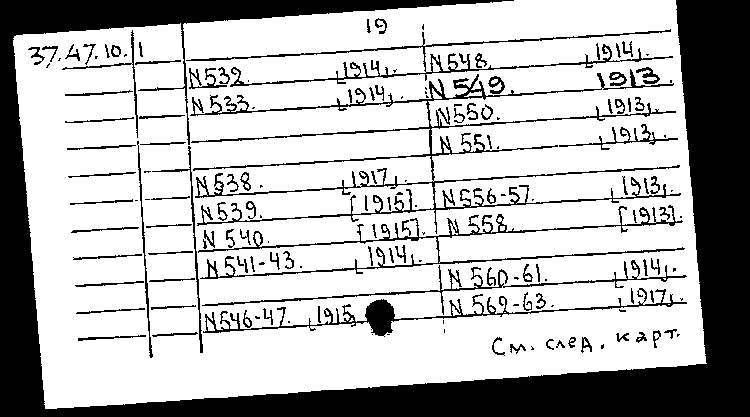 19
37.47.10. 1
N532. [1914].
N533. [1914].
N538. [1917].
N539. [1915].
N 540. [1915].
N 541-43. [1914].
N546-47. [1915]
N548. [1914].
N 549. 1913.
N550. [1913].
N 551. [1913].
N556-57. [1913].
N 558. [1913].
N 560-61. [1914].
N 562-63. [1917].
См. след. карт.